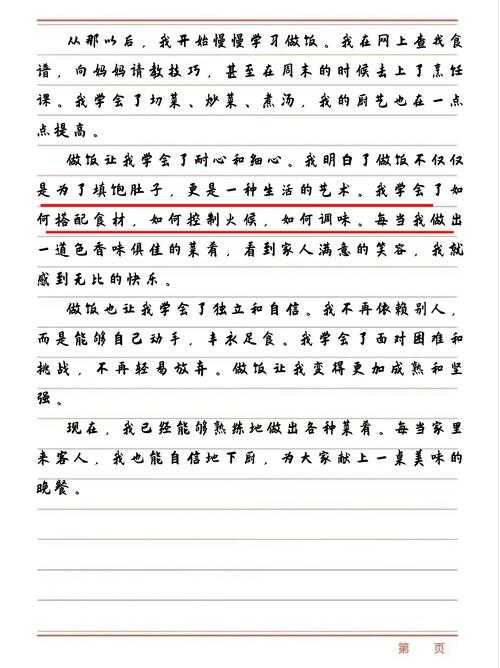 从那以后，我开始慢慢学习做饭。我在网上查找食
谱，向妈妈请教技巧，甚至在周末的时候去上了烹饪
课。我学会了切菜、炒菜、煮汤，我的厨艺也在一点
点提高。
做饭让我学会了耐心和细心。我明白了做饭不仅仅
是为了填饱肚子，更是一种生活的艺术。我学会了如
何搭配食材，如何控制火候，如何调味。每当我做出
一道色香味俱佳的菜肴，看到家人满意的笑容，我就
感到无比的快乐。
做饭也让我学会了独立和自信。我不再依赖别人，
而是能够自己动手，丰衣足食。我学会了面对困难和
挑战，不再轻易放弃。做饭让我变得更加成熟和坚
强。
现在，我已经能够熟练地做出各种菜肴。每当家里
来客人，我也能自信地下厨，为大家献上一桌美味的
晚餐。
第 页